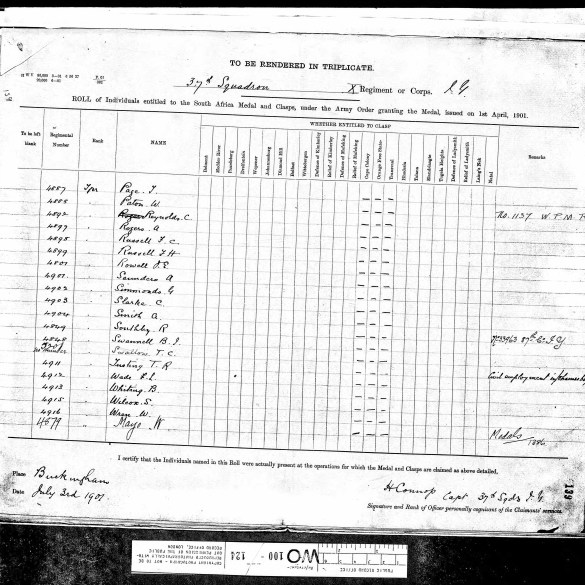 TO BE RENDERED IN TRIPLICATE.
37th Squadron X Regiment or Corps. I.Y.
ROLL of Individuals entitled to the South Africa Medal and Clasps, under the Army Order granting the Medal, issued on 1st April, 1901.
WHETHER ENTITLED TO CLASP
To be left blank Regimental Number Rank NAME Belmont Modder River Paardeberg Driefontein Wepener Johannesburg Diamond Hill Belfast Wittebergen Defence of Kimberley Relief of Kimberley Defence of Mafeking Relief of Mafeking Cape Colony Orange Free State Transvaal Elandslaagte Talana Tugela Heights Defence of Ladysmith Relief of Ladysmith Laing's Nek Natal Remarks
4887 Tpr Page. J.
4888 " Paton. W.
4892 " Reynolds. C. No. 1137 W.P.M.R
4897 " Rogers. A
4898 " Russell F. C.
4899 " Russell F. H
" Rowell J. E
4901 " Saunders A
4902 " Simmonds. G
4903 " Slarke. C.
4904 " Smith A.
" Southby. R
" Swannell B. I. 37th Co I.Y
no number " Swallow. T. C.
4911 " Tusting T. R
4912 " Wade F. L. Civil employment
4913 " Whiting. B.
4915 " Wilcox. S.
4916 " Wren. W.
4879 " Mayo W.
Medals
I certify that the Individuals named in this Roll were actually present at the operations for which the Medal and Clasps are claimed as above detailed.
Place Buckingham
Date July 3rd 1901.
H Connop Capt 37th Sqdn I.Y.
Signature and Rank of Officer personally cognizant of the Claimants' services.
139
PUBLIC RECORD OFFICE
Reference:-
WO 100 - 124
COPYRIGHT PHOTOGRAPH - NOT TO BE REPRODUCED PHOTOGRAPHICALLY WITHOUT PERMISSION OF THE PUBLIC RECORD OFFICE, LONDON